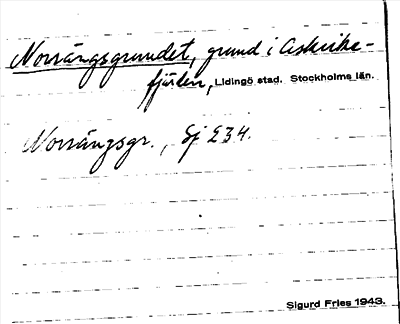 Norrängsgrundet, grund i Askrike-
fjärden, Lidingö stad. Stockholms län.
Norrängsgr., Sj 234.
Sigurd Fries 1943.